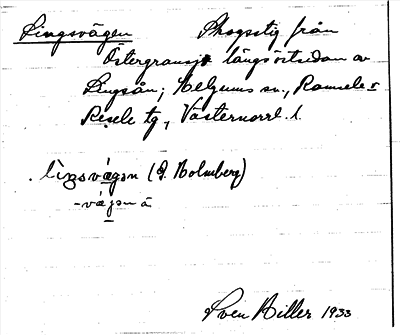 Lingsvägen Skogsstig från
Östergransjö längs östsidan av
Lingsån; Helgums sn., Ramsele o
Resele tg, Västernorrl. l.
lìŋsvǽgən (J. Holmberg)
-vægən ä
Sven Hiller 1933